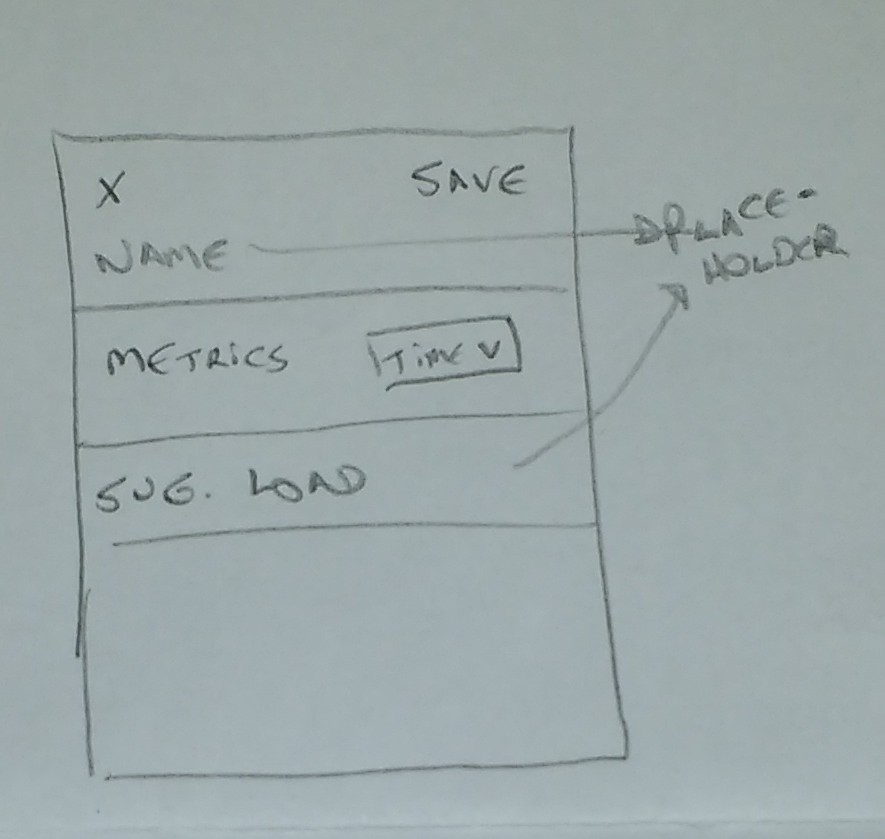 X SAVE
NAME
PLACE-
HOLDER
METRICS TIME V
SUG. LOAD